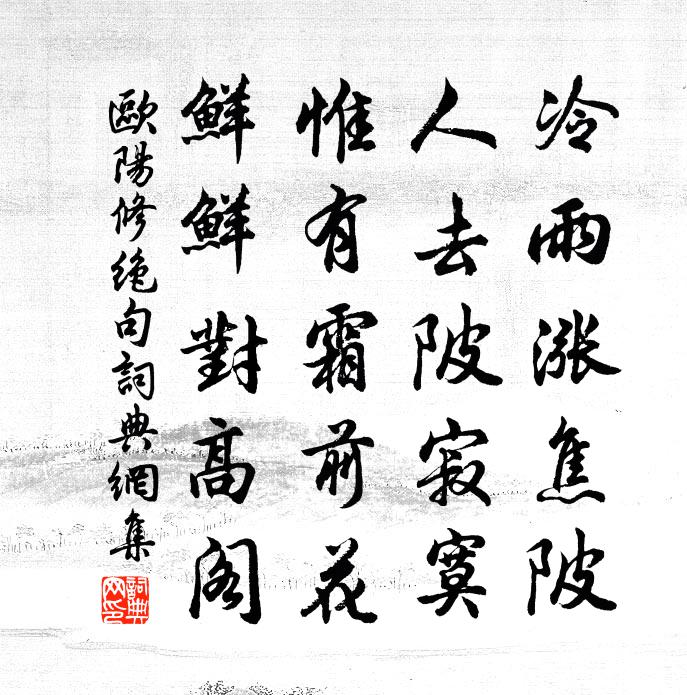 冷雨漲焦陂
人去陂寂寞
惟有霜前花
鮮鮮對高阁
歐陽修絶句詞典網集
詞典网印